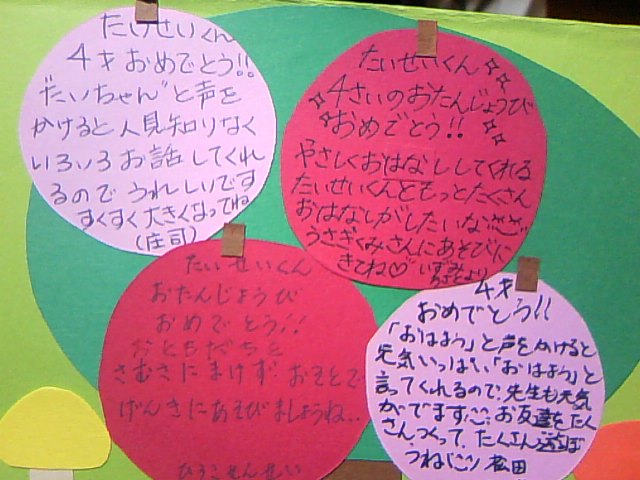 たいせいくん
4才おめでとう!!
"たいちゃん"と声を
かけると人見知りなく
いろいろお話してくれ
るのでうれしいです
すくすく大きくなってね
(庄司)
たいせいくん
4さいのおたんじょうび
おめでとう!!
やさしくおはなししてくれる
たいせいくんともっとたくさん
おはなしがしたいな
うさぎくみさんにあそびに
きてね♡ いずみ
より
たいせいくん
おたんじょうび
おめでとう!!
おともだちと
さむさにまけず おそとで
げんきにあそびましょうね...
ひろこせんせい
4才
おめでとう!!
「おはよう」と声をかけると
元気いっぱい「おはよう」と
言ってくれるので、先生も元気
がでます。お友達をたく
さんつくって、たくさん遊ぼ
うね 松田